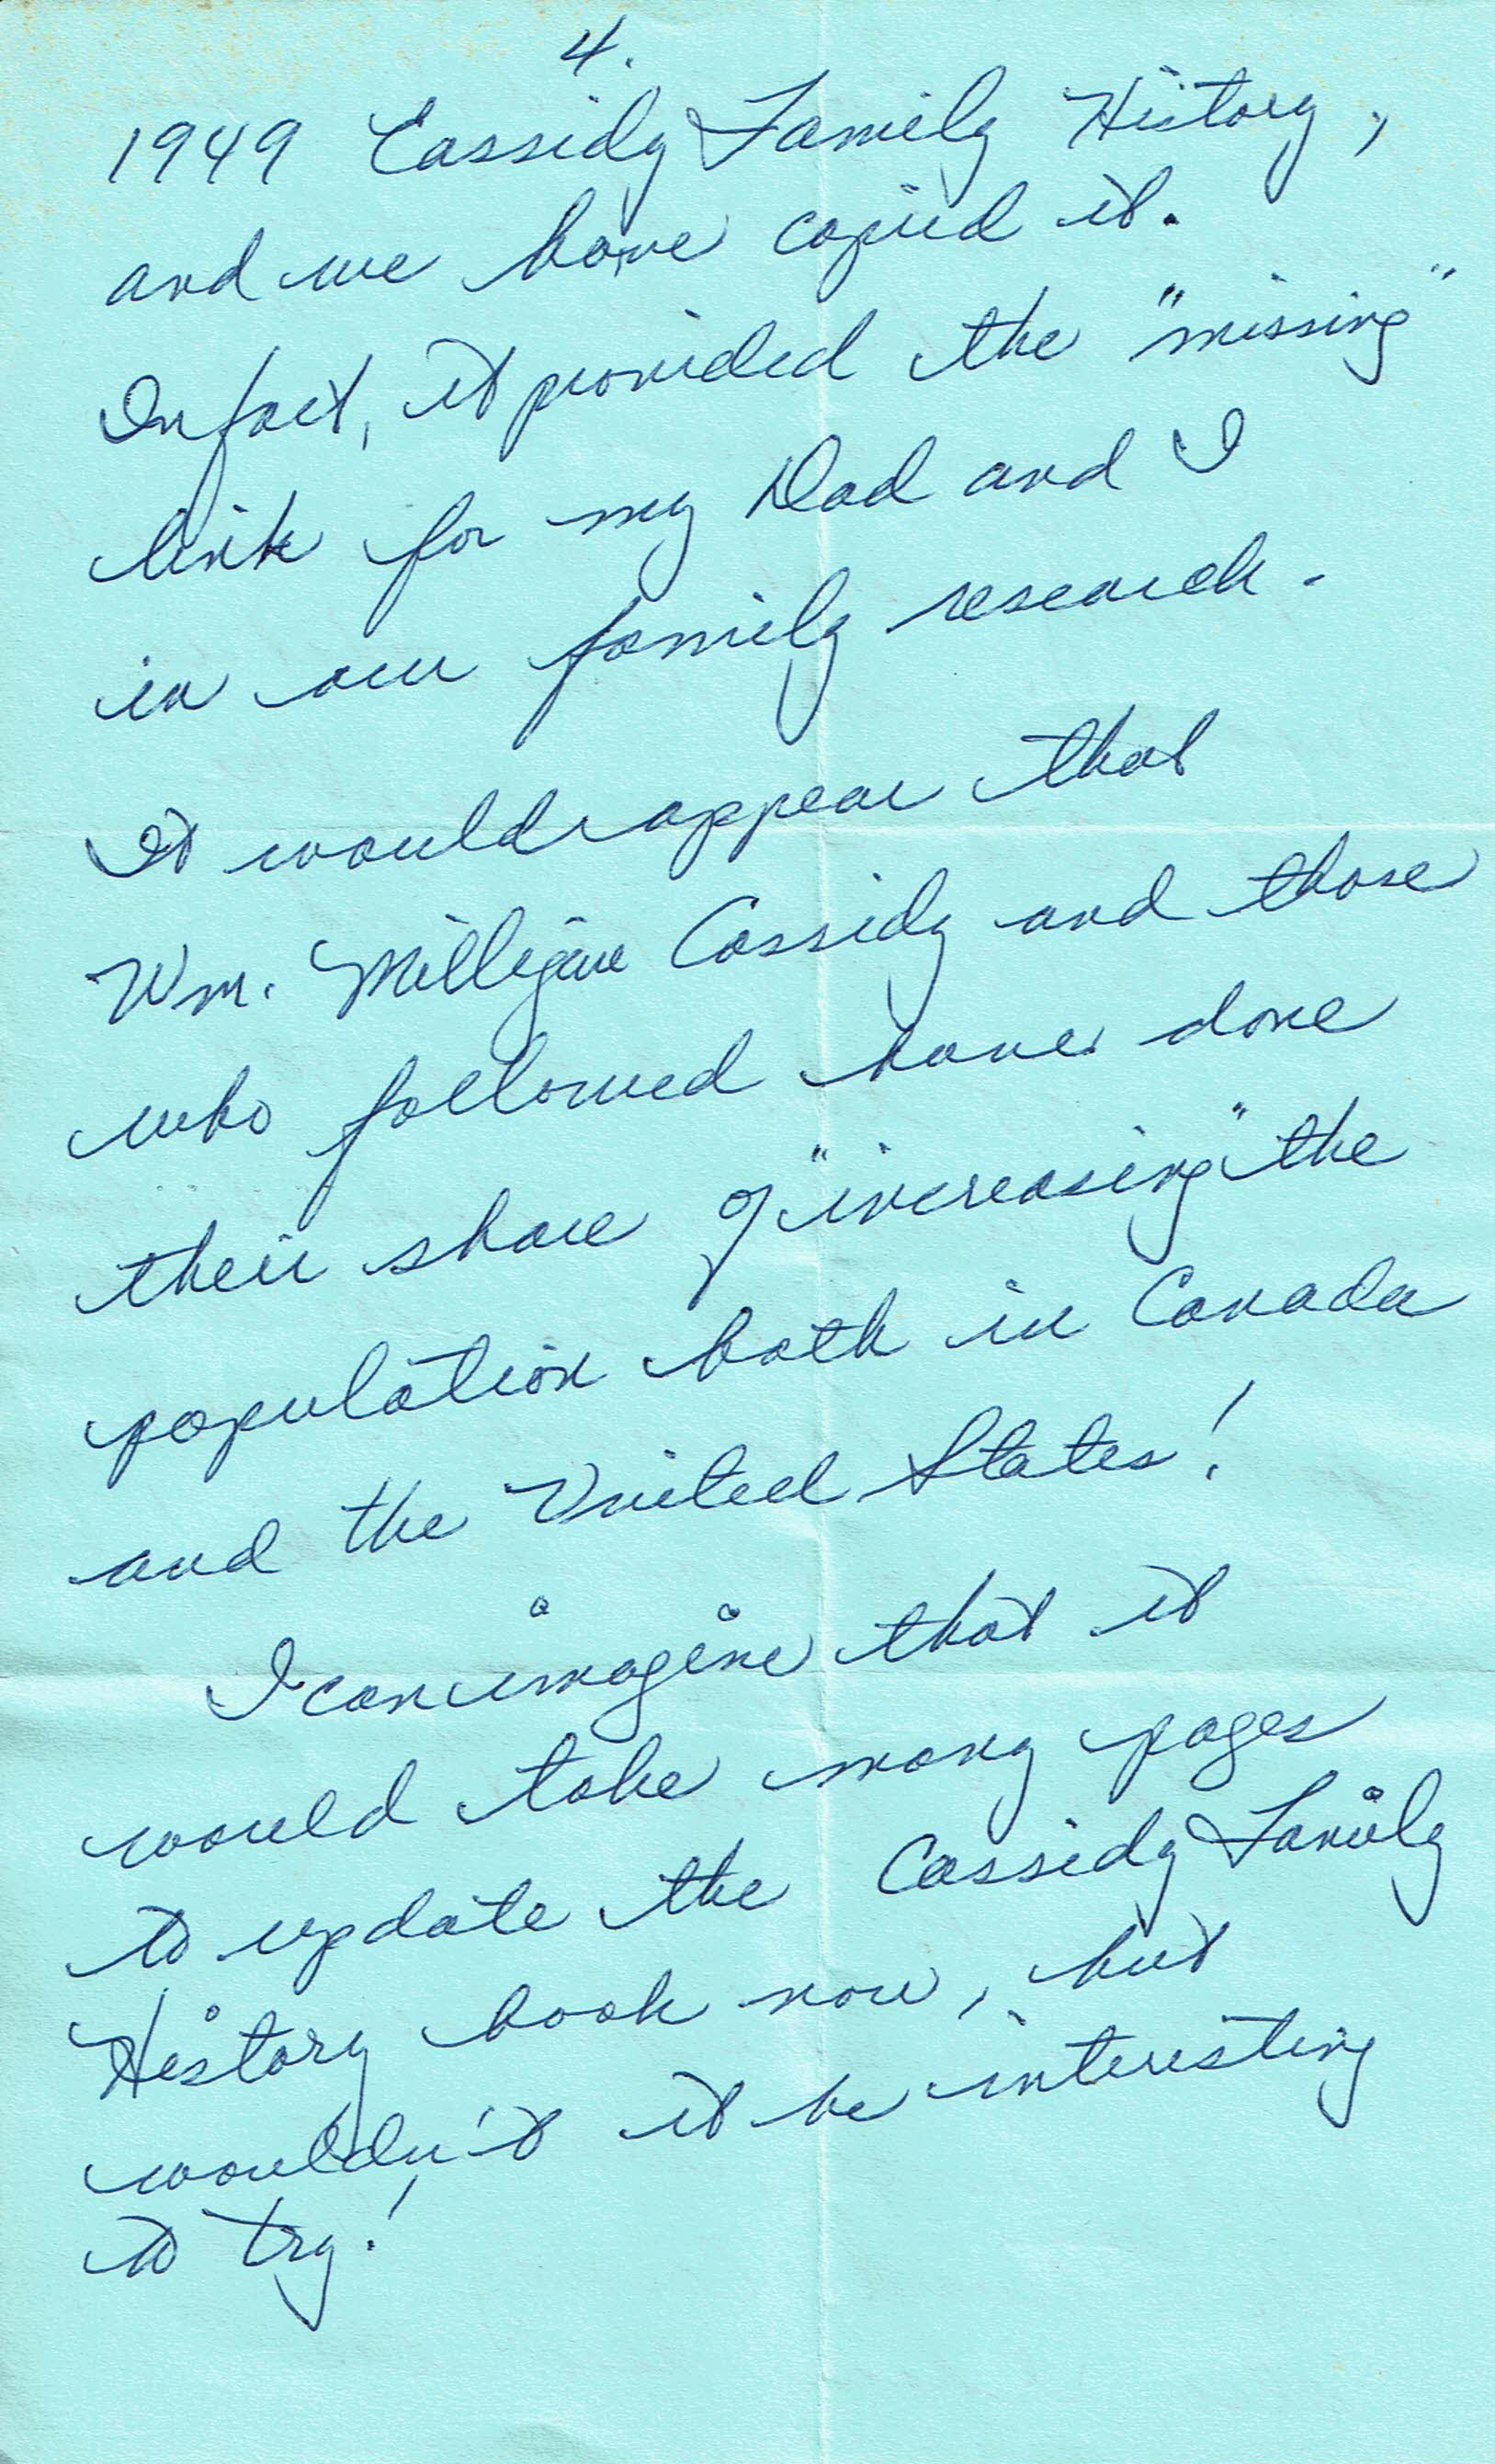 4.
1949 Cassidy Family History,
and we have copied it.
In fact, it provided the "missing"
link for my Dad and I
in our family research.
It would appear that
Wm. Milligan Cassidy and those
who followed have done
their share of "increasing" the
population both in Canada
and the United States!
I can imagine that it
would take many pages
to update the Cassidy Family
History book now, but
wouldn't it be interesting
to try!